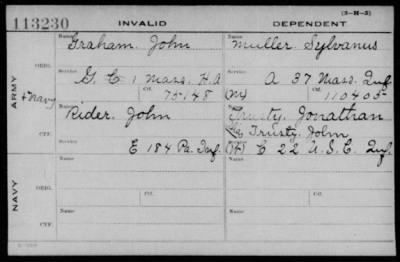 (3-H-3)
113230 INVALID DEPENDENT
Name Graham, John Name Muller, Sylvanus
ORIG.
Service G, C 1 Mass. H.A Service A 37 Mass. Inf
Ctf. 75148 (M) Ctf. 110405
ARMY + Navy
Name Rider, John Name Trusty, Jonathan
Trusty, John
CTF.
Service E 184 Pa. Inf. C 22 U.S.C. Inf.
Name Name
ORIG.
Service Ctf. Service Ctf.
NAVY
Name Name
CTF.